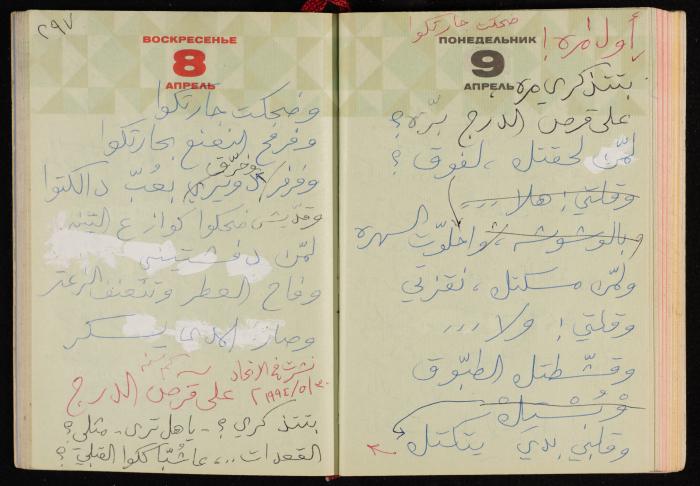 ٢٩٧
ВОСКРЕСЕНЬЕ
8
АПРЕЛЬ
وضحكت جارتكوا
وفرفح النعنع بحارتكوا
وخرّق
وفرفر الدويري بعُبّ دالكتوا
وقدّيش ضحكوا كوازع التينه
لمّن دفشتيني
وفاح العطر وتتعنف الزعتر
وصار المدى يسكر
نشرت في الاتحاد
٣٠/٥/١٩٩٤
على قرص الدرج
بتتذكري؟ - يا هل ترى - مثلي؟
القعدات .. عاشبّاككوا القبلي؟
ضحكت جارتكوا
أول مره!
ПОНЕДЕЛЬНИК
9
АПРЕЛЬ
بتتذكري مره
على قرص الدرج برّه؟
لمّن لحقتك، لفوق؟
وقلتي: هلا ...
وبالوشوشه، واحلوّت السهره
ولمّن مسكتك، نقزتي
وقلتي: ولا ...
وقشّطتك الطبّوق
وبُستك
وقلبي بدي يتكتك